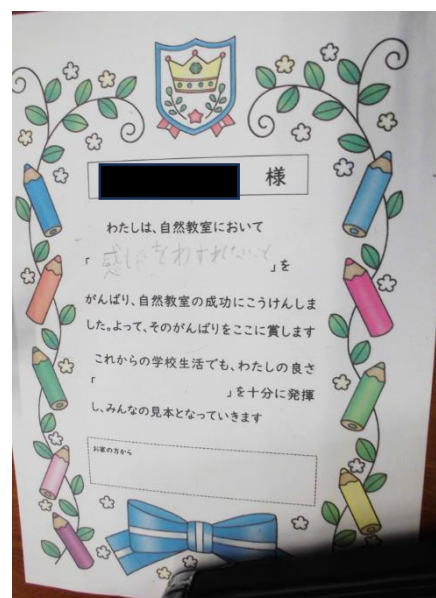 様
わたしは、自然教室において
「感しゃをわすれないこと」を
がんばり、自然教室の成功にこうけんしま
した。よって、そのがんばりをここに賞します
これからの学校生活でも、わたしの良さ
「」を十分に発揮
し、みんなの見本となっていきます
お家の方から